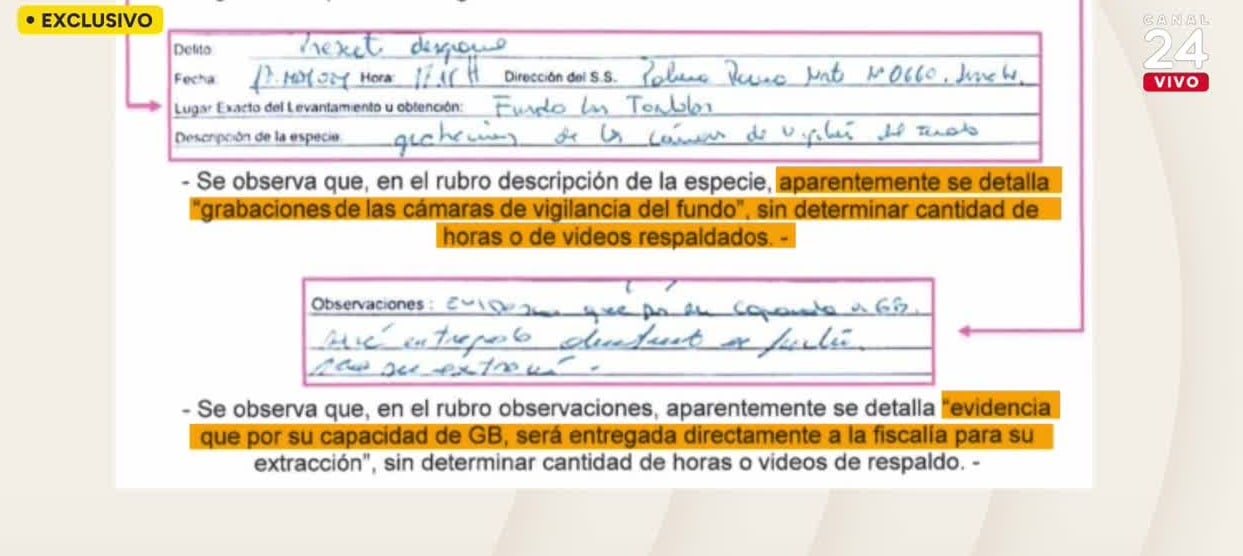 • EXCLUSIVO
CANAL
24
VIVO
Delito
Fecha: Hora: 17.15 H Dirección del S.S. Nº 0660.
Lugar Exacto del Levantamiento u obtención: Fundo
Descripción de la especie: de las cámaras de del fundo
- Se observa que, en el rubro descripción de la especie, aparentemente se detalla
"grabaciones de las cámaras de vigilancia del fundo", sin determinar cantidad de
horas o de videos respaldados. -
Observaciones: Evidencia que por su capacidad de GB.
será entregada directamente a fiscalía
para su extracción.
- Se observa que, en el rubro observaciones, aparentemente se detalla "evidencia
que por su capacidad de GB, será entregada directamente a la fiscalía para su
extracción", sin determinar cantidad de horas o videos de respaldo. -